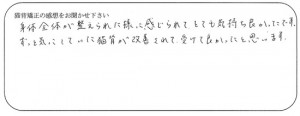 猫背矯正の感想をお聞かせ下さい
身体全体が整えられた様に感じられて、とても気持ち良かったです。
ずっと気にしていた猫背が改善されて、受けて良かったと思います。